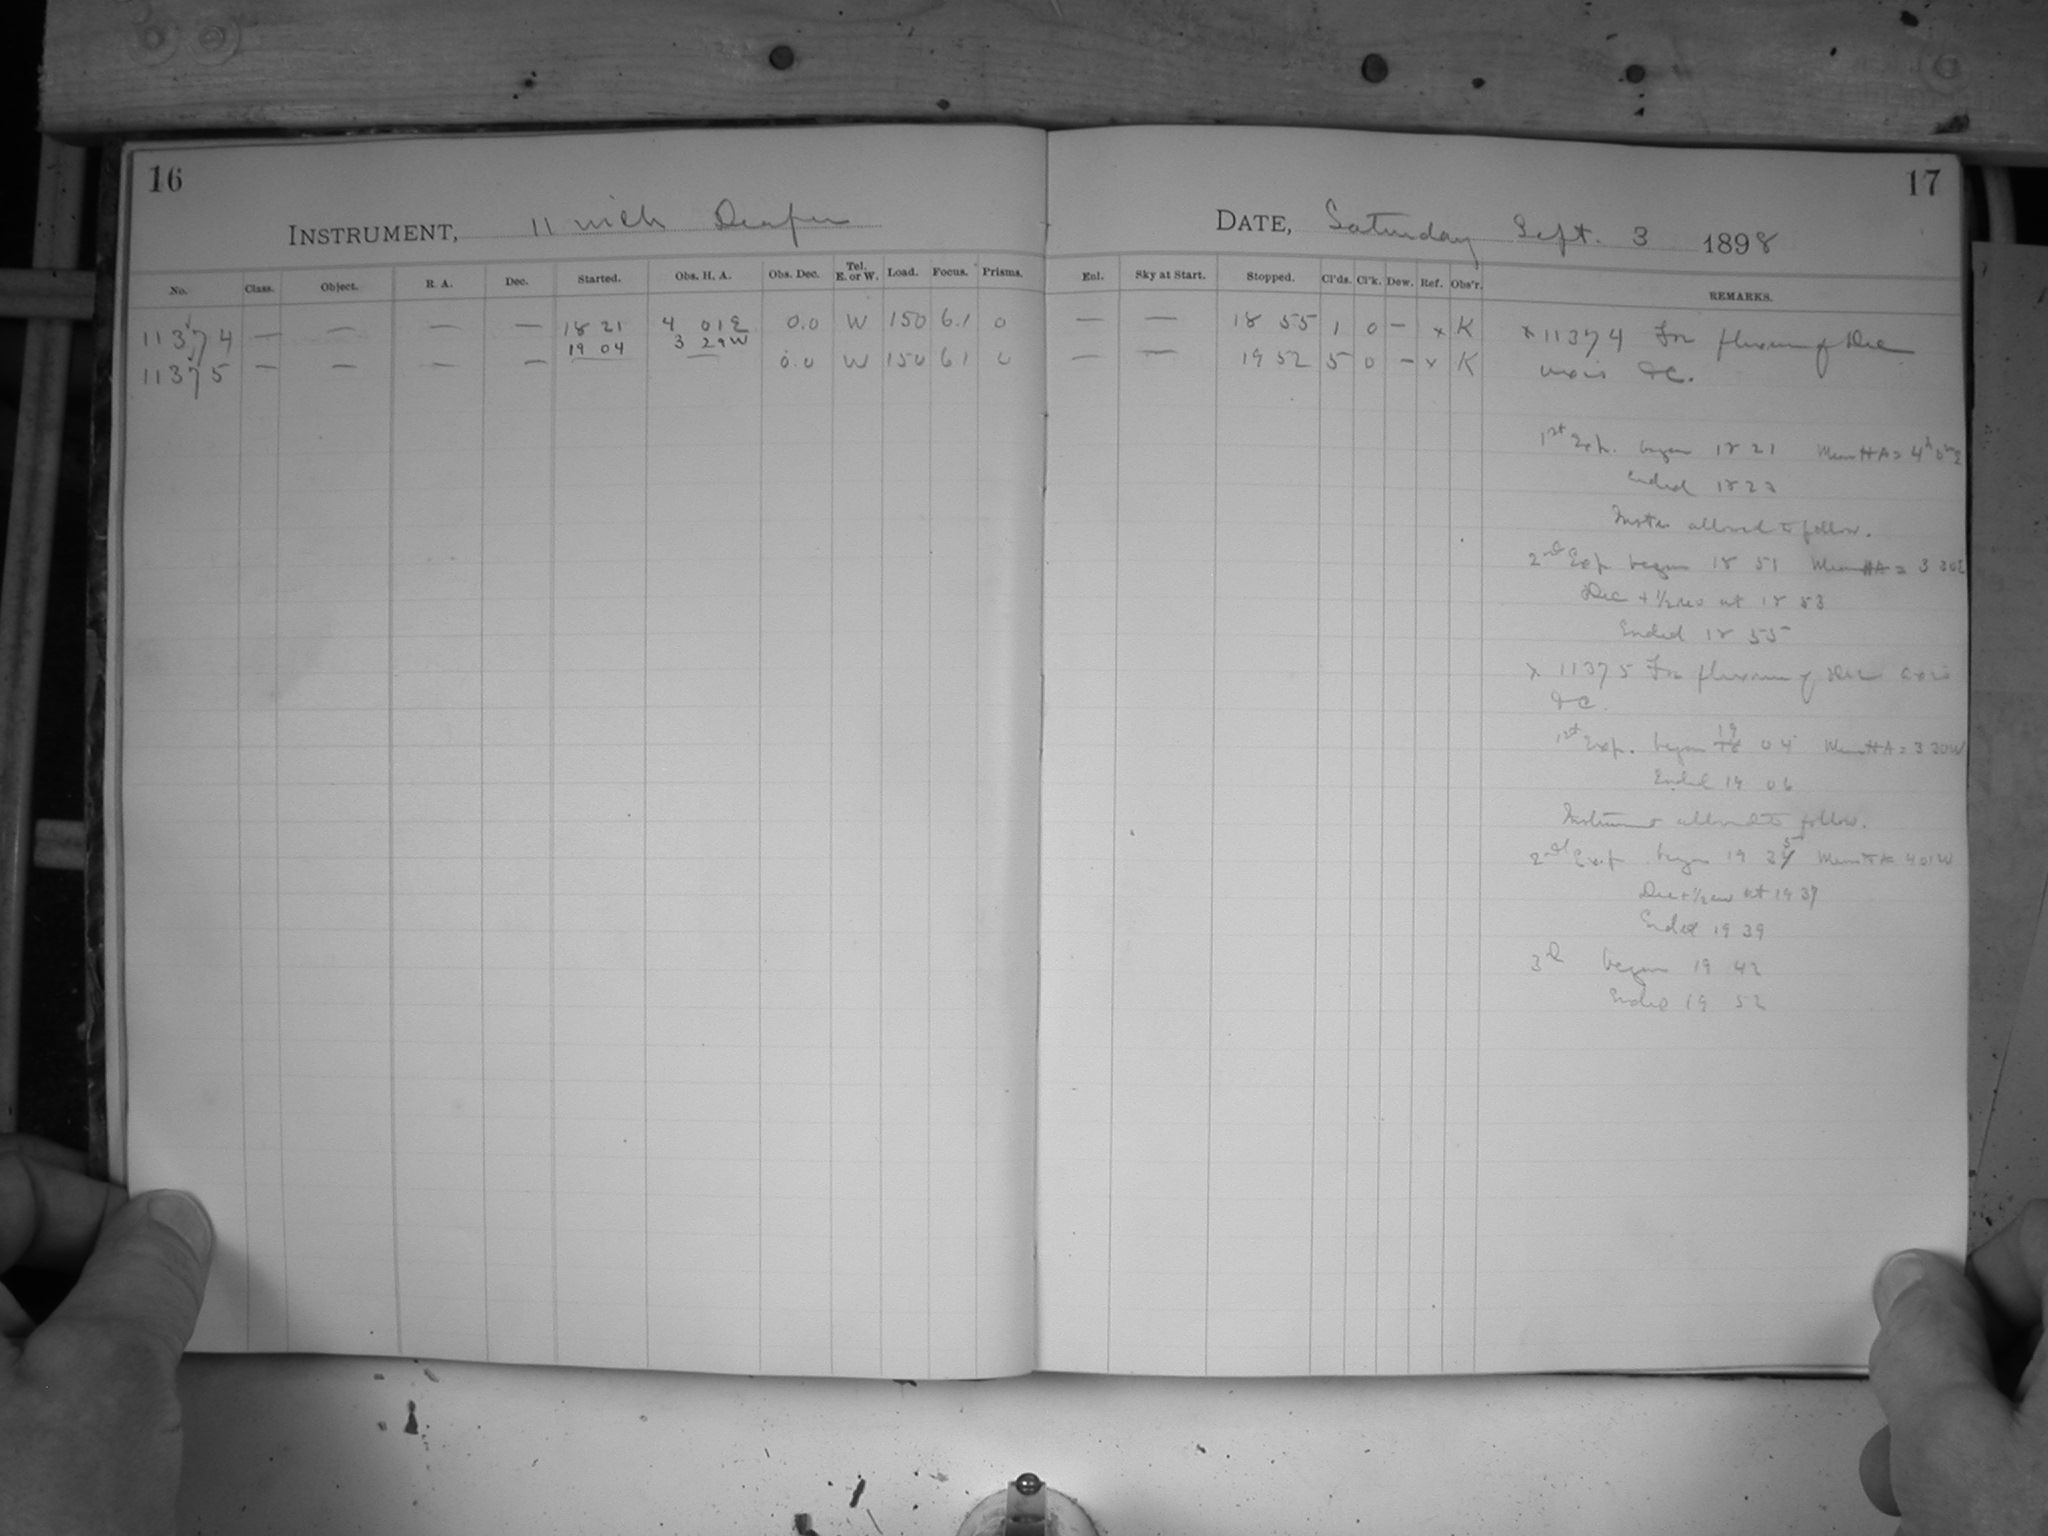 16
INSTRUMENT, 11 inch Draper
No. Class. Object. R. A. Dec. Started. Obs. H. A. Obs. Dec. Tel. E. or W. Load. Focus. Prisms.
11374 — — — — 18 21 4 01E 0.0 W 150 6.1 0
11375 — — — — 19 04 3 29W 0.0 W 150 6.1 0
17
DATE, Saturday Sept. 3 1898
Enl. Sky at Start. Stopped. Cl'ds. Cl'k. Dew. Ref. Obs'r. REMARKS.
— — 18 55 1 0 — x K
— — 19 52 5 0 — x K
x 11374 For flexure of Dec
axis &c.
1st Exp. began 18 21 Mean HA = 4h 0m E
Ended 18 23
allowed to follow.
2nd Exp began 18 51 Mean HA = 3 30E
Dec + 1/2 rev at 18 53
Ended 18 55
x 11375 For flexure of Dec axis
&c.
1st Exp. began 19 04 Mean HA = 3 30W
Ended 19 06
Instrument allowed to follow.
2nd Exp began 19 35 Mean HA 4 01W
Dec + 1/2 rev at 19 37
Ended 19 39
3d began 19 42
Ended 19 52